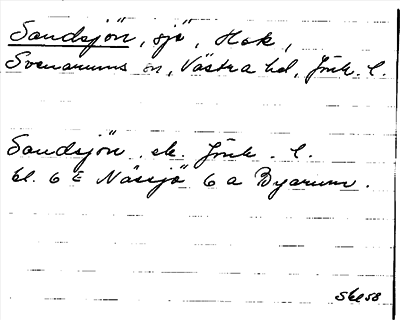 Sandsjön, sjö, Hok,
Svenarums sn, Västra hd, Jönk. l.
Sandsjön ek. Jönk. l.
bl. 6 E Nässjö 6 a Byarum.